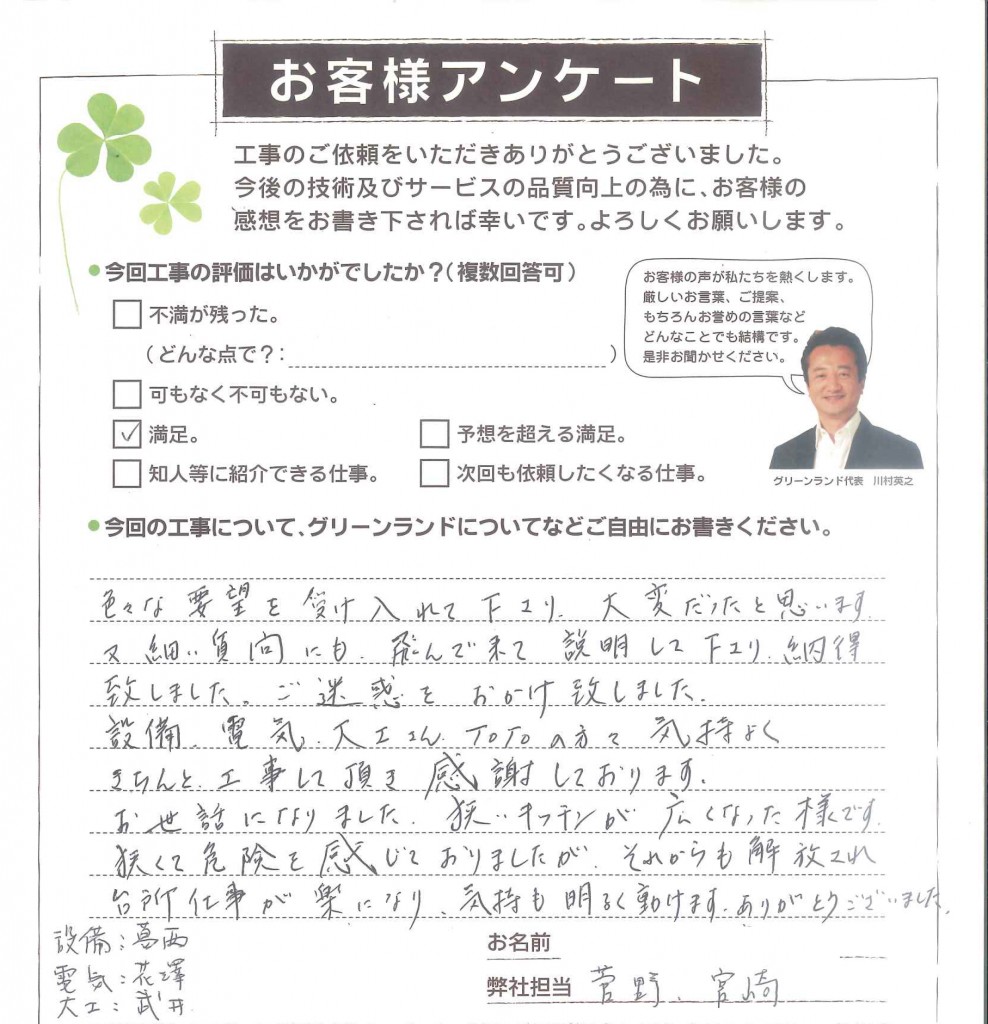 お客様アンケート
工事のご依頼をいただきありがとうございました。
今後の技術及びサービスの品質向上の為に、お客様の
感想をお書き下されば幸いです。よろしくお願いします。
●今回工事の評価はいかがでしたか？（複数回答可）
お客様の声が私たちを熱くします。
厳しいお言葉、ご提案、
もちろんお誉めの言葉など
どんなことでも結構です。
是非お聞かせください。
グリーンランド代表　川村英之
□ 不満が残った。
（どんな点で？：　　　）
□ 可もなく不可もない。
☑ 満足。　□ 予想を超える満足。
□ 知人等に紹介できる仕事。　□ 次回も依頼したくなる仕事。
●今回の工事について、グリーンランドについてなどご自由にお書きください。
色々な要望を受け入れて下さり、大変だったと思います。
又細い質問にも、飛んで来て説明して下さり、納得
致しました。ご迷惑をおかけ致しました。
設備、電気、大工さん、TOTOの方々気持よく
きちんと工事して頂き感謝しております。
お世話になりました。狭いキッチンが広くなった様です。
狭くて危険を感じておりましたが、それからも解放され
台所仕事が楽になり、気持も明るく動けます。ありがとうございました。
設備：葛西
電気：花澤
大工：武井
お名前
弊社担当　菅野、宮崎